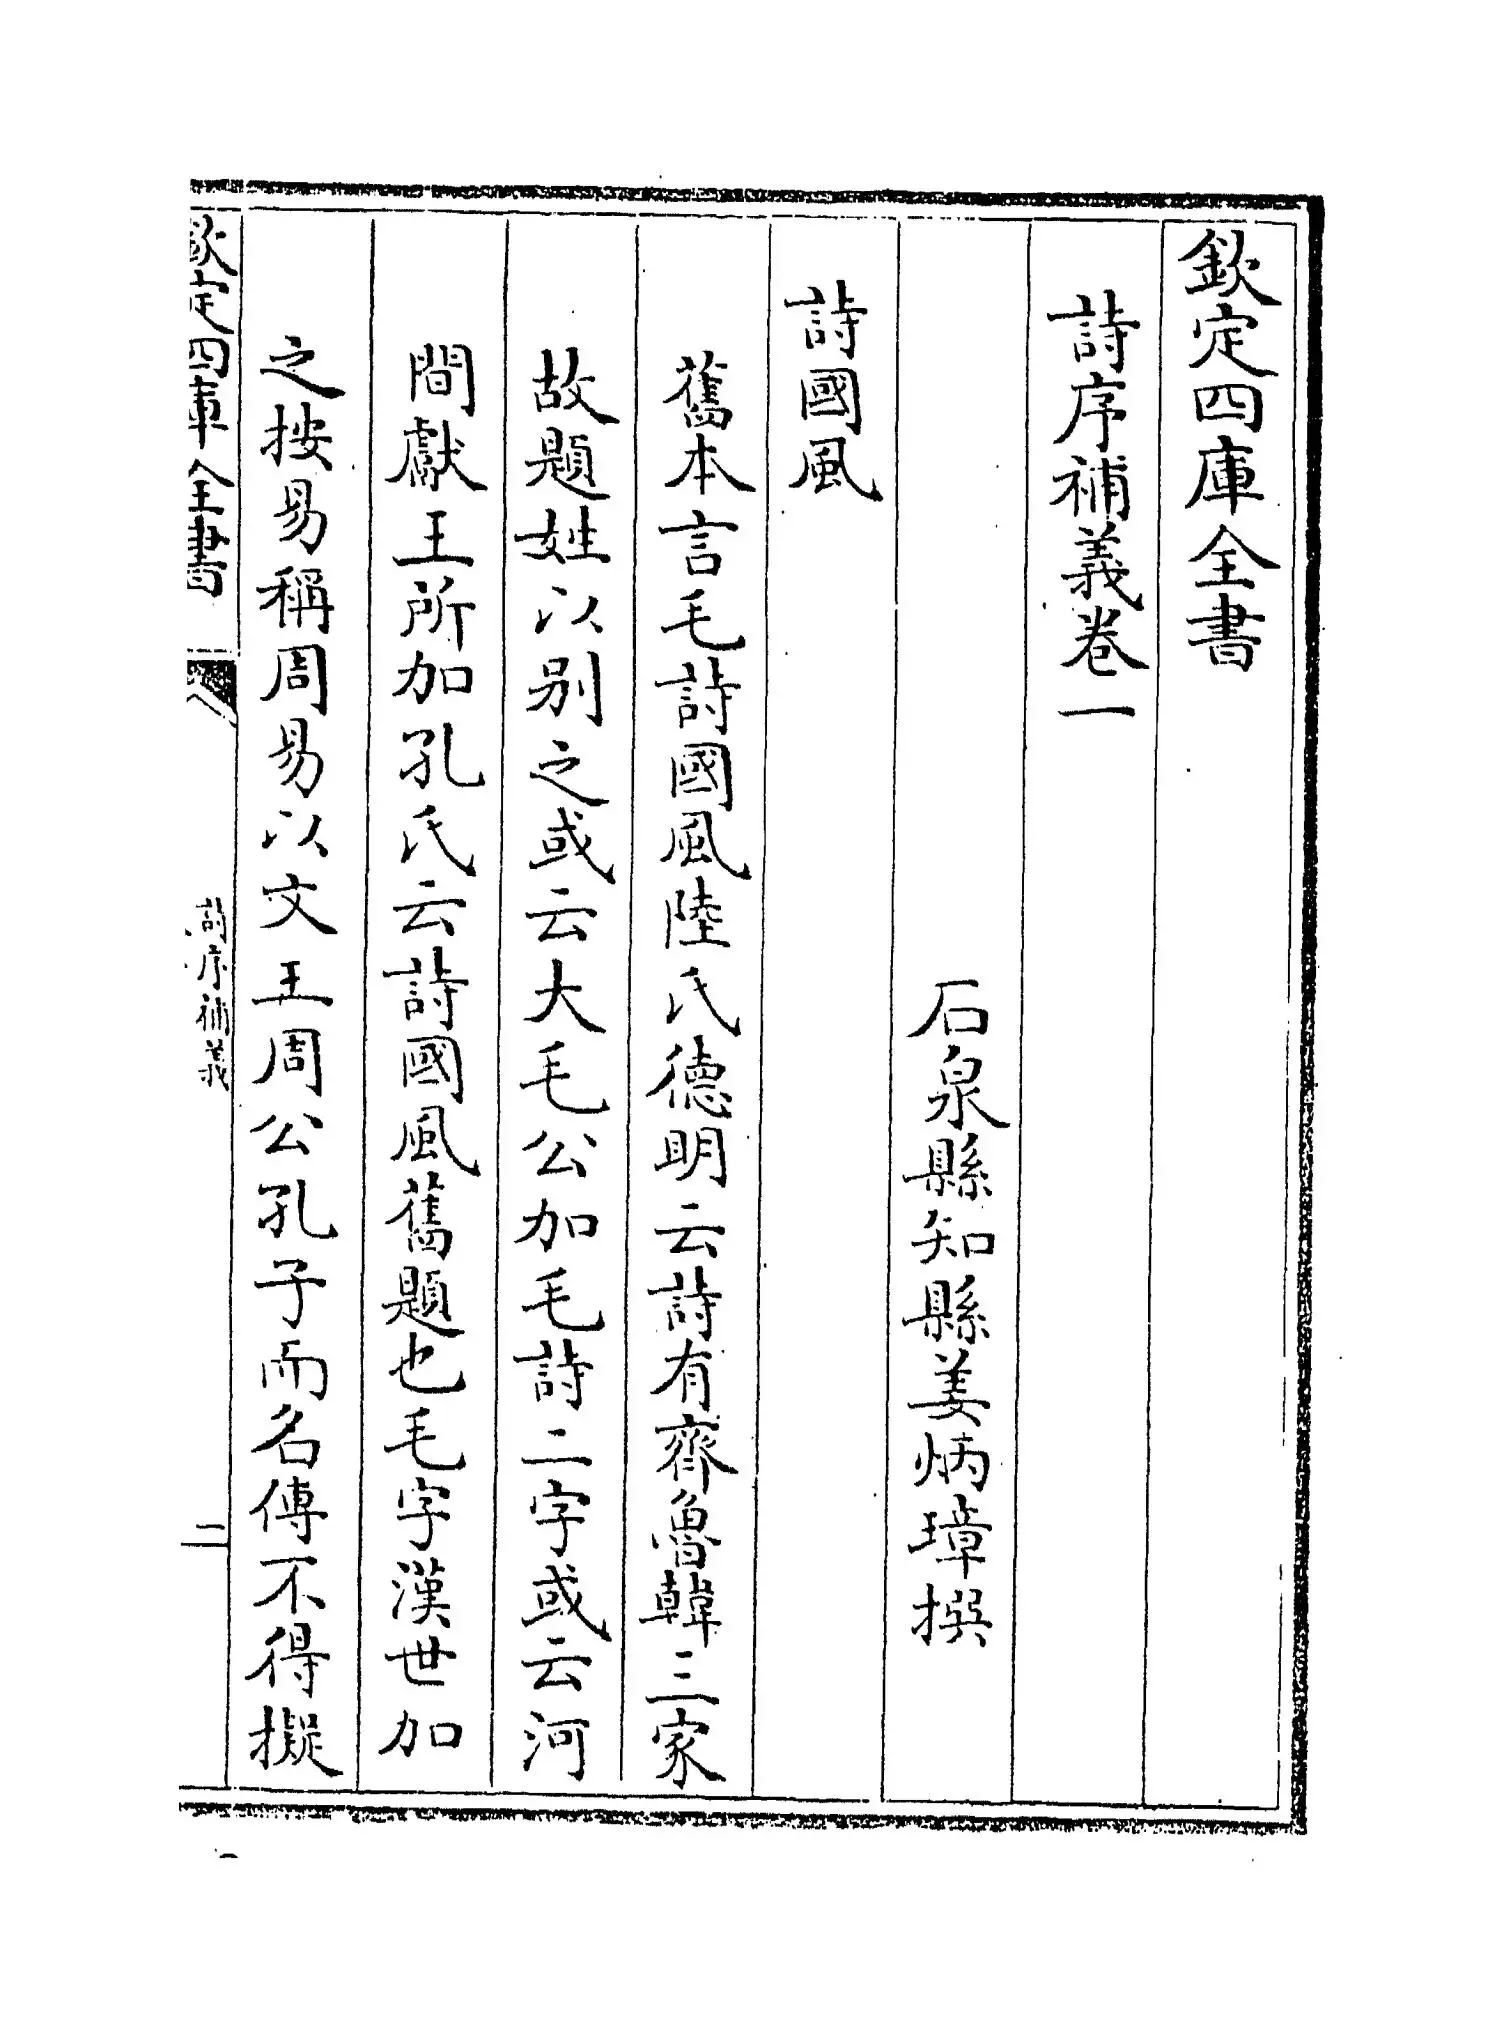 欽定四庫全書
詩序補義卷一
石泉縣知縣姜炳璋撰
詩國風
舊本言毛詩國風陸氏德明云詩有齊魯韓三家
故題姓以别之或云大毛公加毛詩二字或云河
間獻王所加孔氏云詩國風舊題也毛字漢世加
之按易稱周易以文王周公孔子而名傳不得擬
欽定四庫全書
詩序補義
二